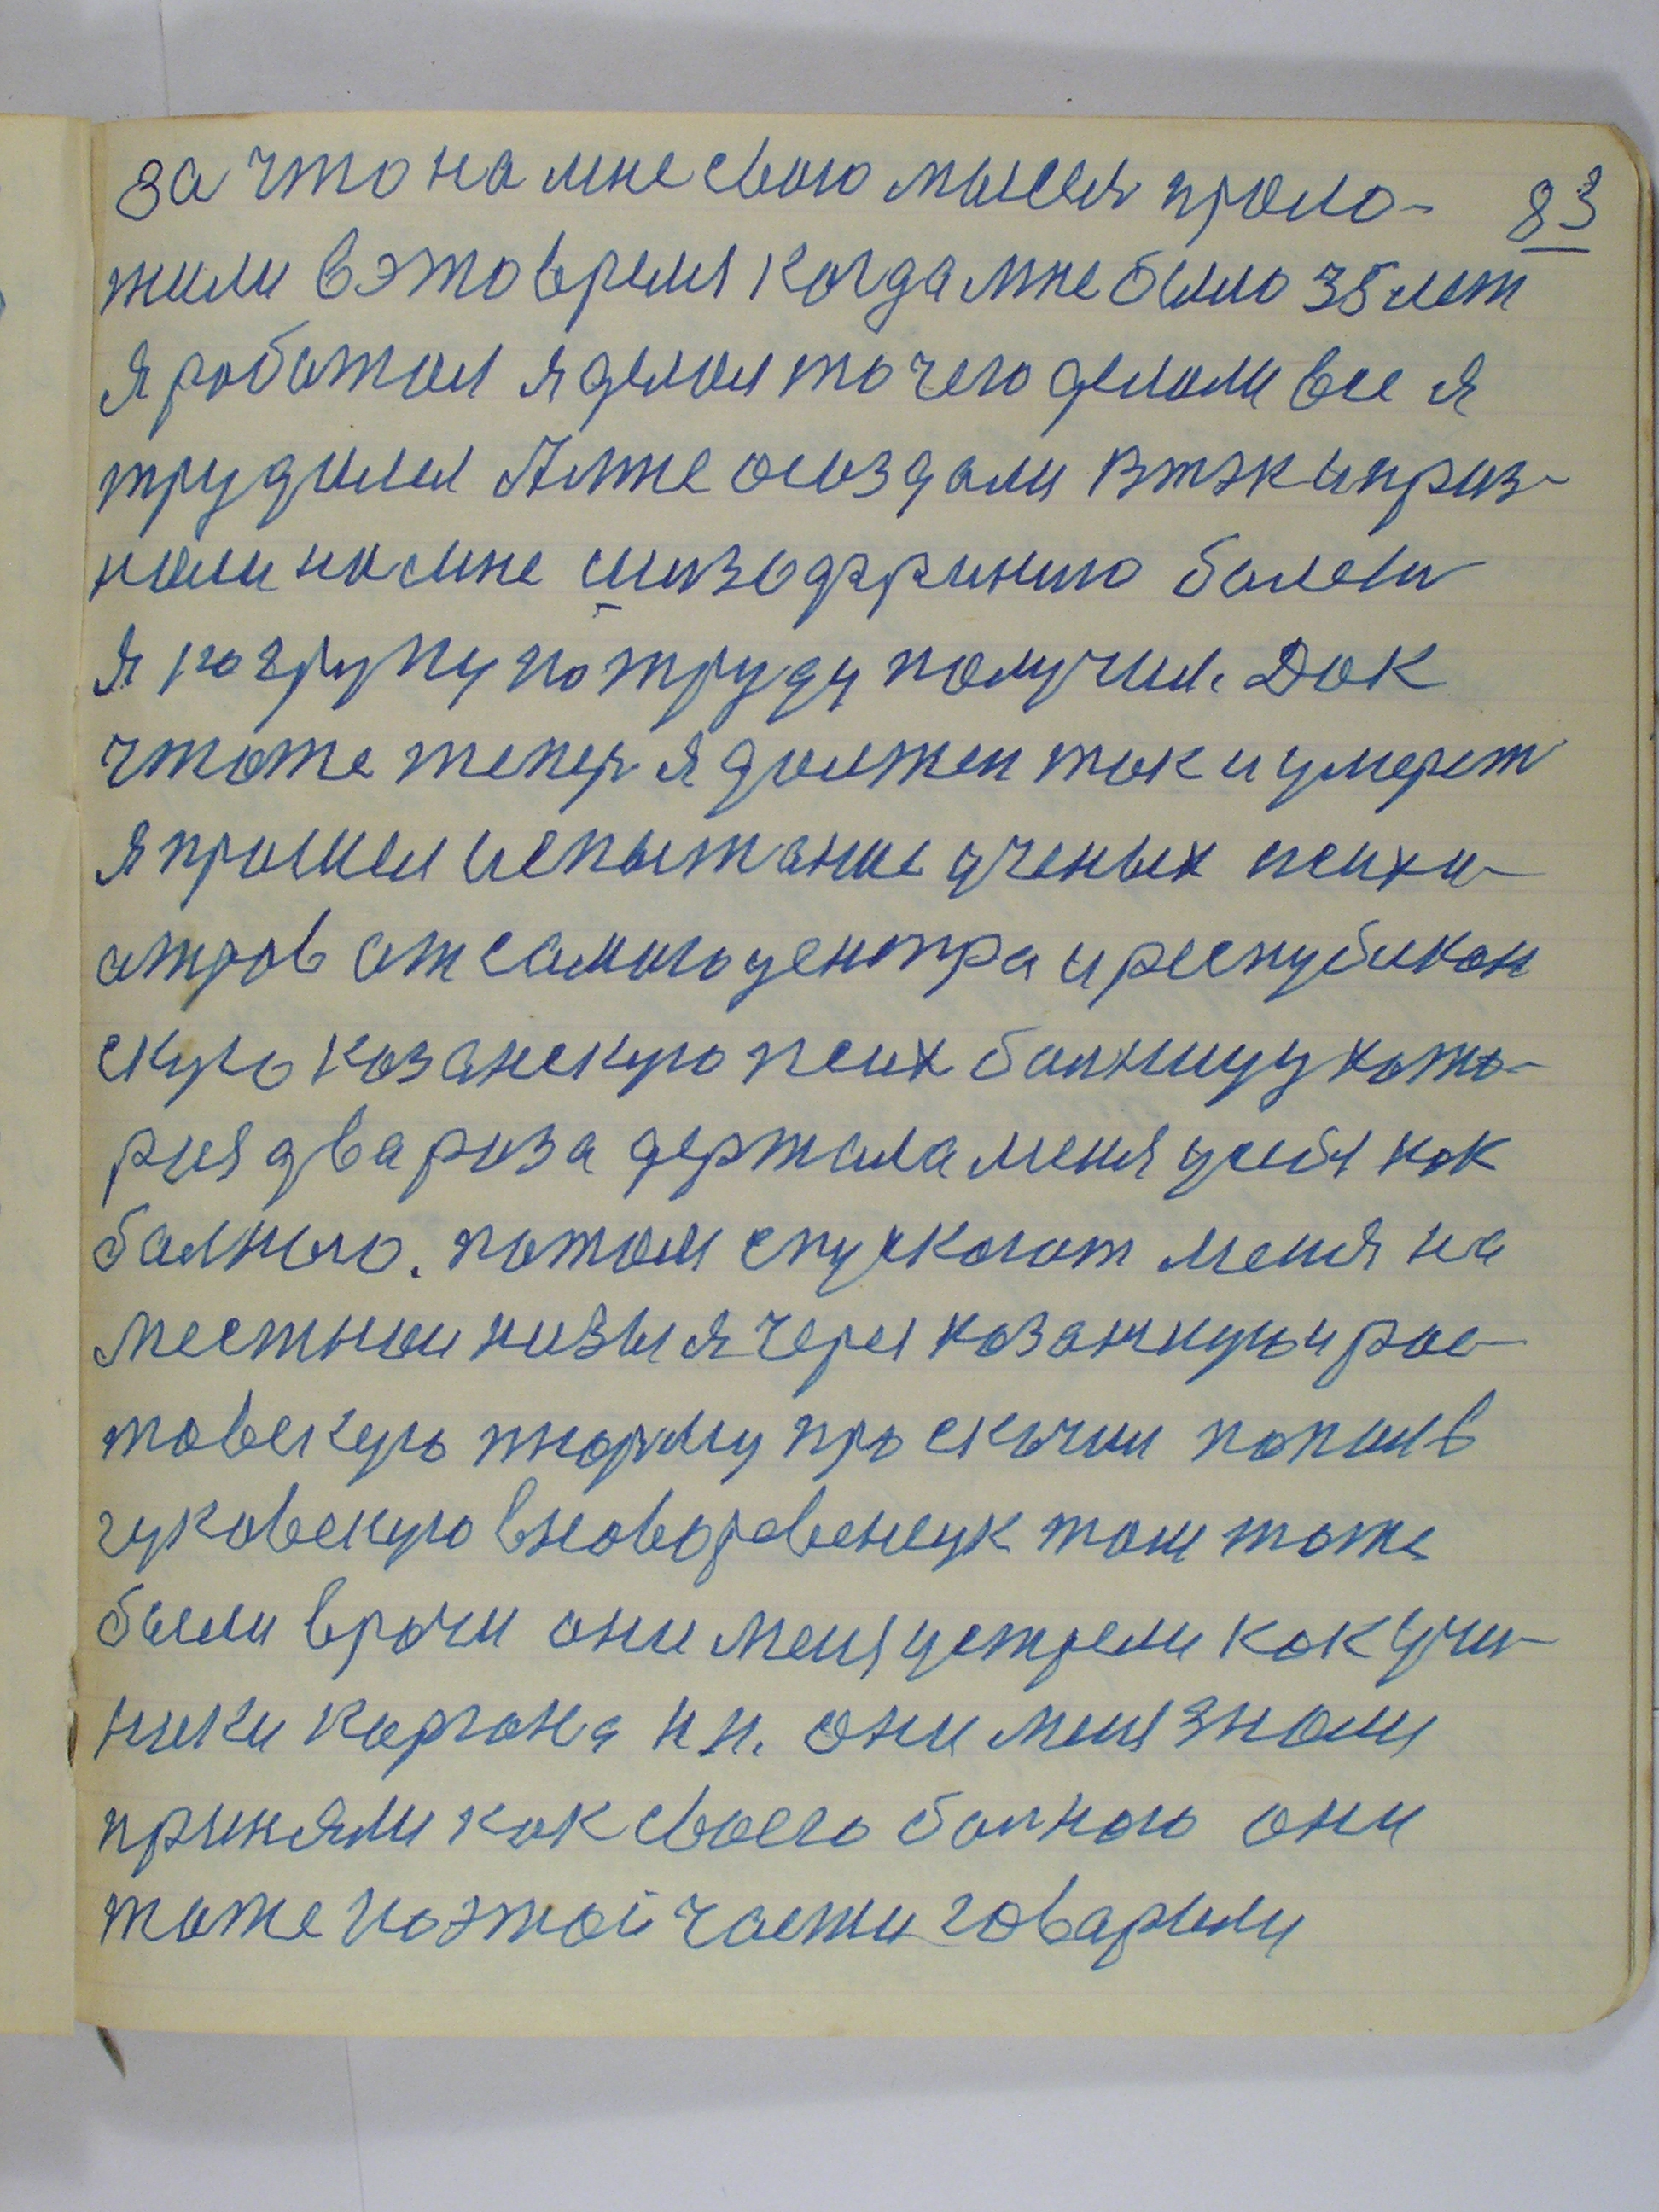 за что на мне свою мысля проло- 83
жили в это время когда мне было 35 лет
я работал я делал то чего делали все я
трудился А мне создали втэк и приз-
нали на мне шизофринию болезн
я по групу по труду получил. Дак
что же теперь я должен так и умерет
я прошел испытание ученых психи-
атров от самого центра и республикан
скую казанскую псих балницу кото-
рия два раза держала меня у себя как
балного. потом спускают меня на
местные низы я через казанскую и рос-
товскую тюрму проскочил попал в
чуковскую в новоровенецк там тоже
были врачи они меня устрели как учи-
ники каргана н.н. они меня знали
приняли как своего балного они
тоже по этой части говарили